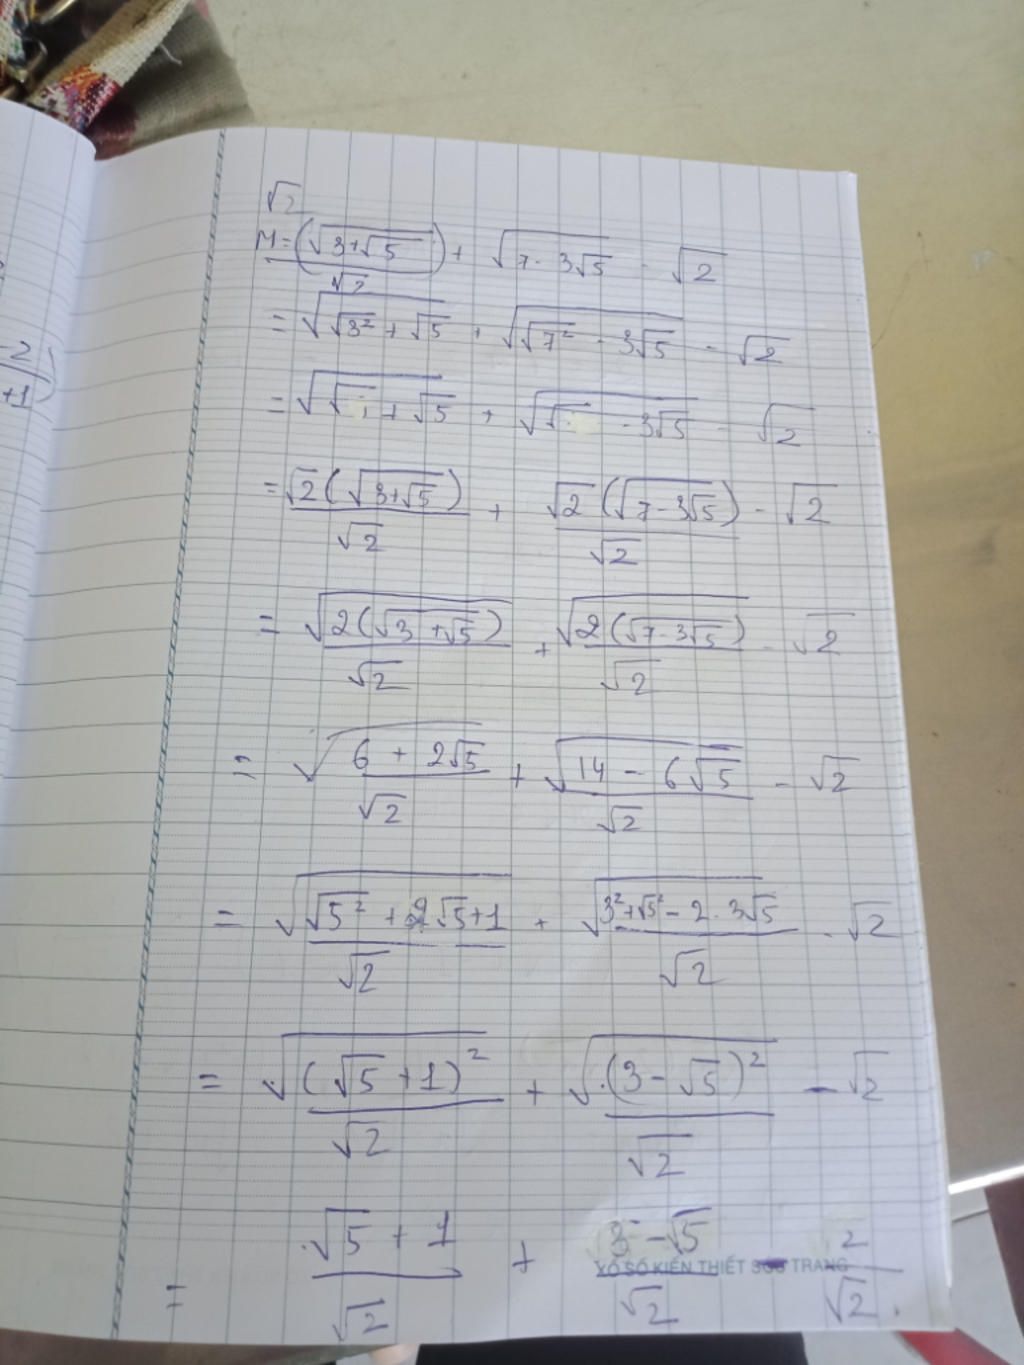 √2
M = (√(3+√5))/√2 + √(7 - 3√5) - √2
= √(√3² + √5) + √(√7² - 3√5) - √2
= √(√ + √5) + √(√ - 3√5) - √2
= √2(√(3+√5))/√2 + √2(√(7-3√5))/√2 - √2
= √(2(√3+√5))/√2 + √(2(√7-3√5))/√2 - √2
= √(6 + 2√5)/√2 + √(14 - 6√5)/√2 - √2
= √(√5² + 2√5+1)/√2 + √(3²+√5² - 2.3√5)/√2 - √2
= √((√5+1)²)/√2 + √((3-√5)²)/√2 - √2
= (√5 + 1)/√2 + (3-√5)/√2 - 2/√2.
XỔ SỐ KIẾN THIẾT SÓC TRĂNG
-2
+1)